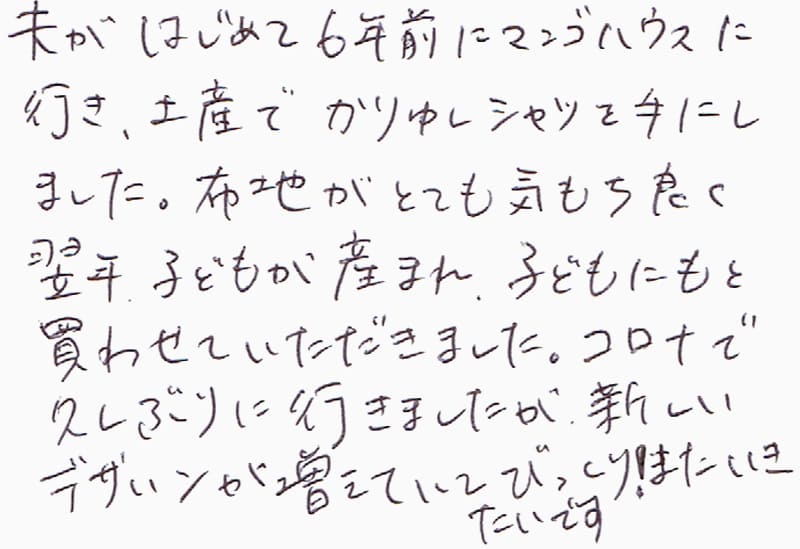 夫がはじめて6年前にマンゴハウスに
行き、土産でかりゆしシャツを手にし
ました。布地がとても気もち良く
翌年、子どもが産まれ、子どもにもと
買わせていただきました。コロナで
久しぶりに行きましたが、新しい
デザインが増えていてびっくり!またいき
たいです